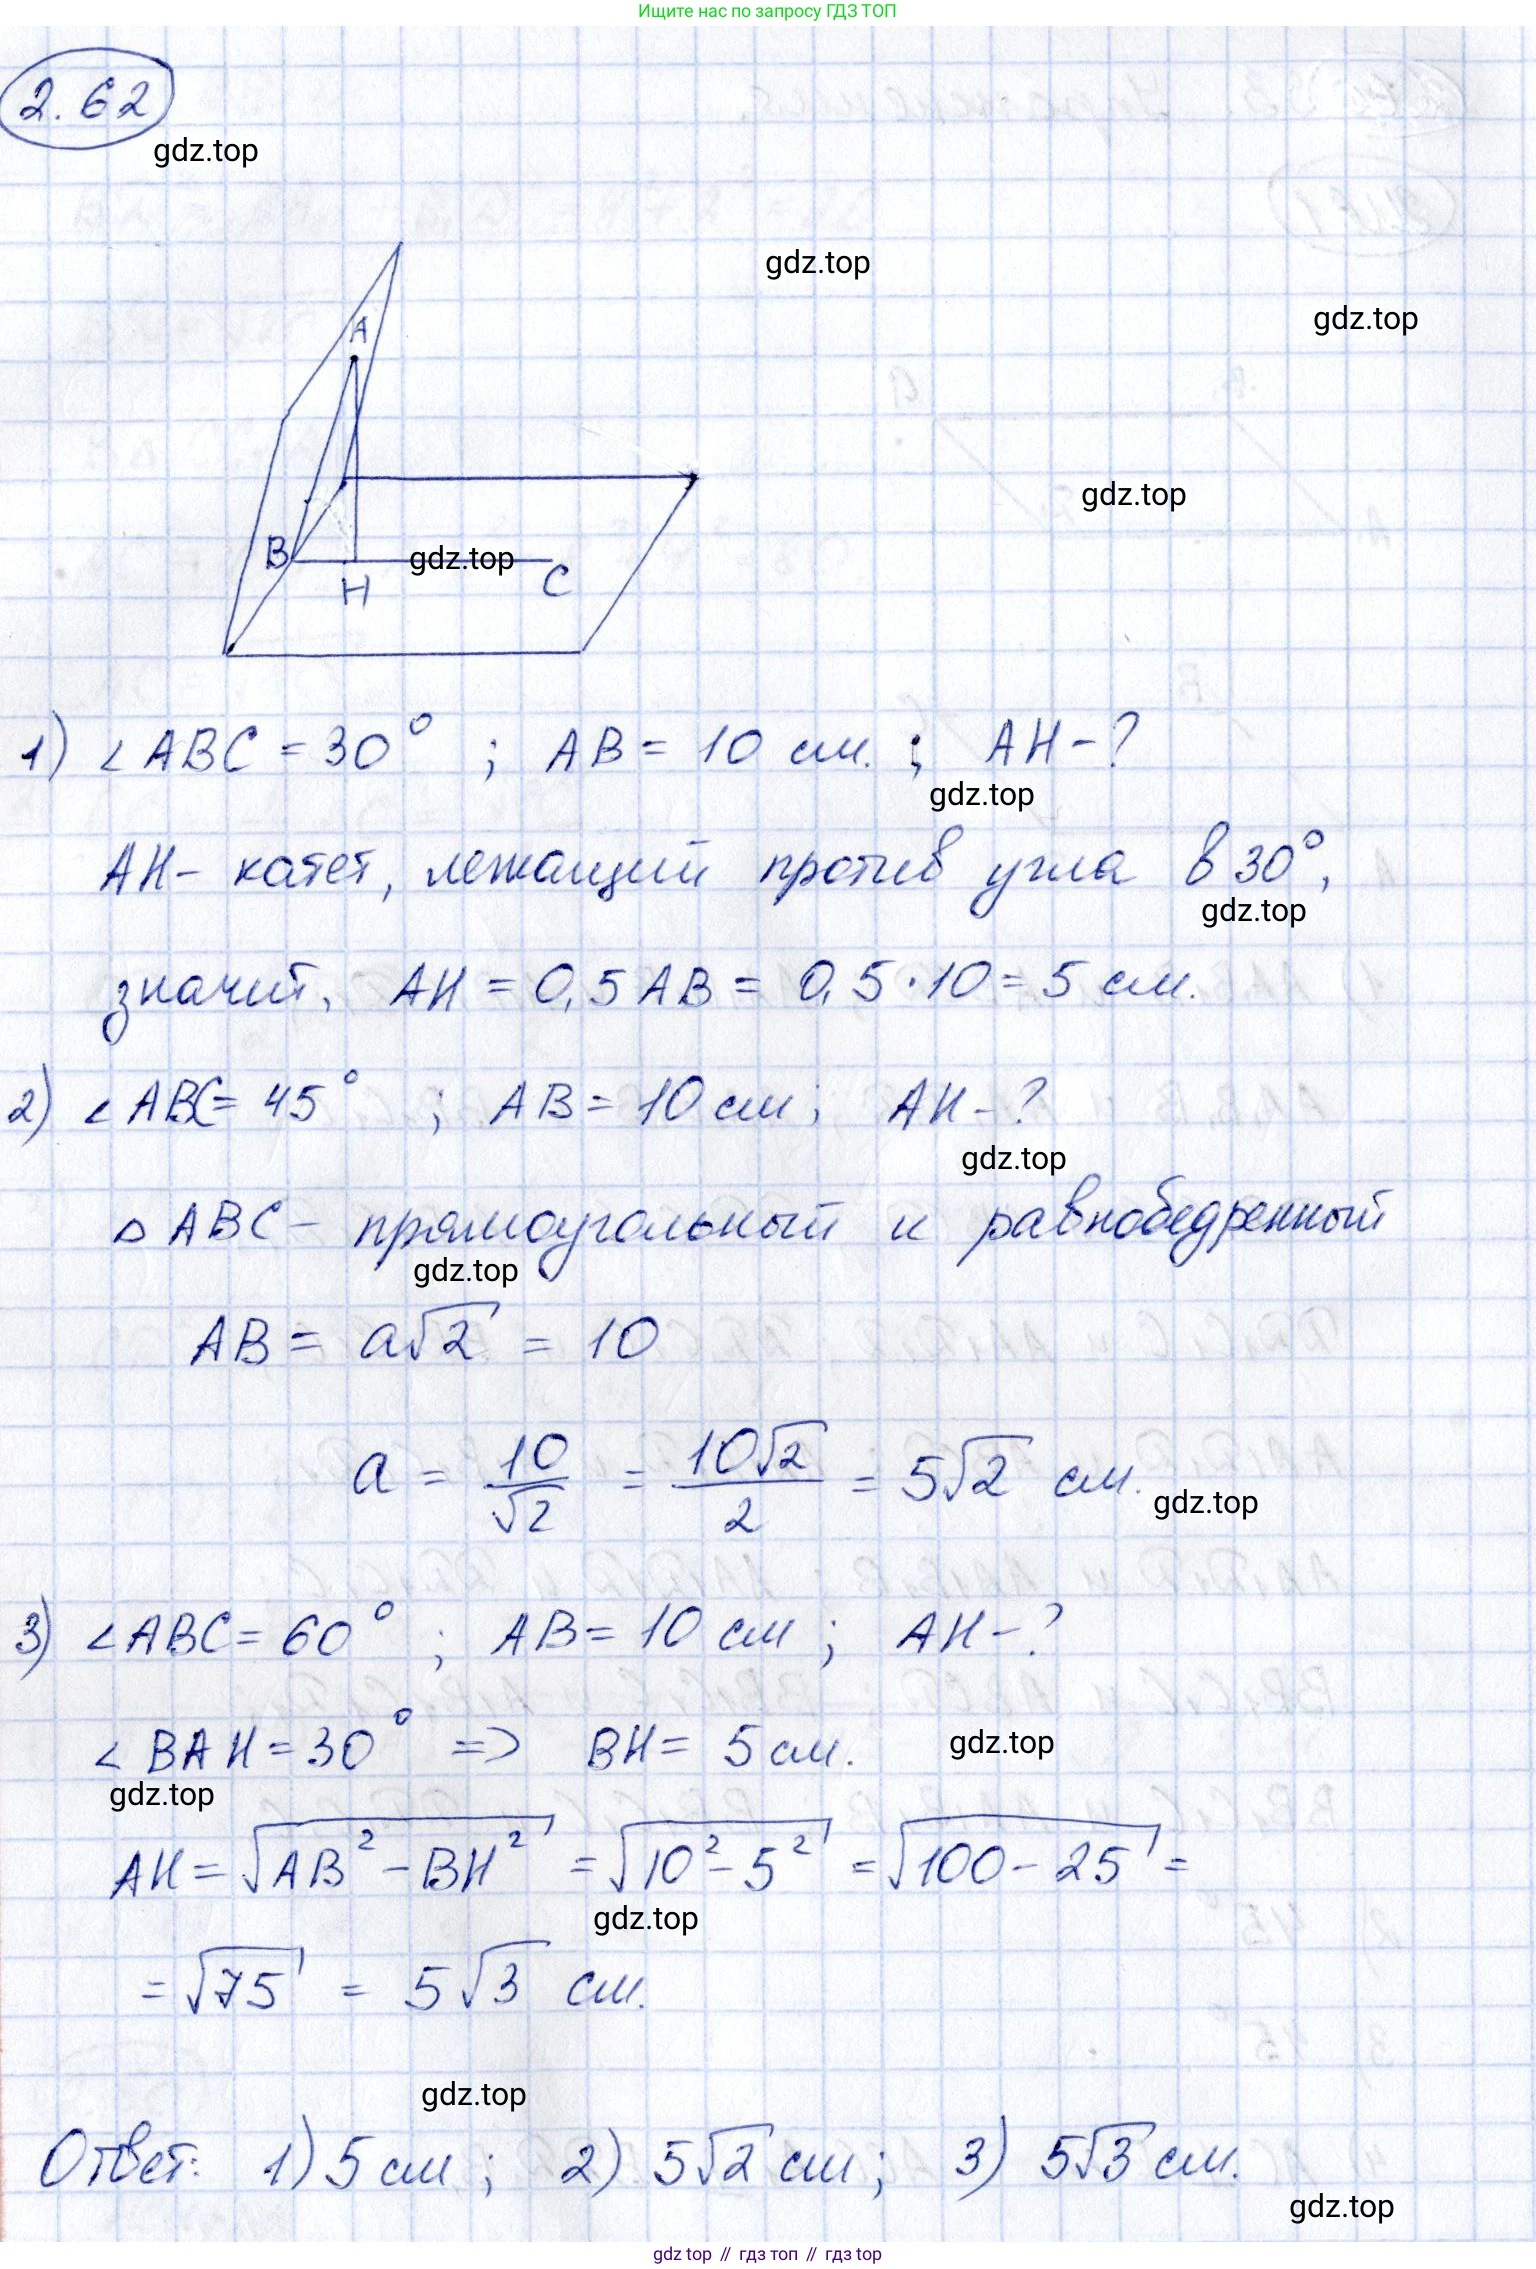 Ищите нас по запросу ГДЗ ТОП
2.62
gdz.top
gdz.top
gdz.top
A
gdz.top
B
gdz.top
H
C
1) ∠ABC = 30° ; AB = 10 см. ; AH - ?
gdz.top
AH - катет, лежащий против угла в 30°,
gdz.top
значит, AH = 0,5 AB = 0,5 · 10 = 5 см.
2) ∠ABC = 45° ; AB = 10 см ; AH - ?
gdz.top
△ ABC - прямоугольный и равнобедренный
gdz.top
AB = a√2 = 10
a = 10/√2 = 10√2/2 = 5√2 см.
gdz.top
3) ∠ABC = 60° ; AB = 10 см ; AH - ?
∠BAH = 30° => BH = 5 см.
gdz.top
gdz.top
AH = √(AB² - BH²) = √(10² - 5²) = √(100 - 25) =
gdz.top
= √75 = 5√3 см.
gdz.top
Ответ: 1) 5 см ; 2) 5√2 см ; 3) 5√3 см.
gdz.top
gdz top // гдз топ // гдз top